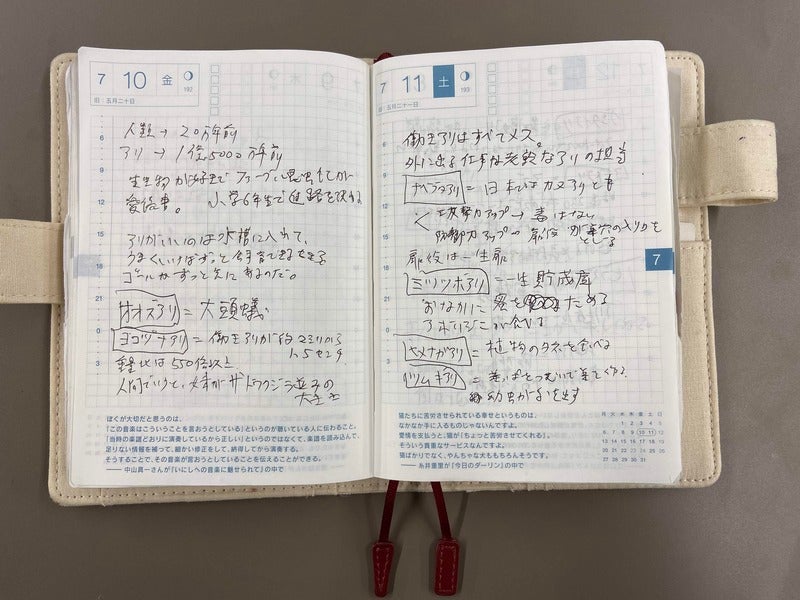 7 10 金
192
旧:五月二十日
人類→20万年前
アリ→1億5000万年前
生生物が好きでファーブル昆虫記が
愛読書。 小学6年生で進路を決める
アリがいいのは水槽に入れて、
うまくいけばずっと飼育できる
ゴールがずっと先にあるのだ。
オオズアリ=大頭蟻
ヨコヅナアリ=働きアリが約2ミリから
1.5センチ
体重比は550倍以上
人間でいうと、女王がザトウクジラ並みの
大きさ
ぼくが大切だと思うのは、
「この音楽はこういうことを言おうとしている」というのが聴いている人に伝わること。
「当時の楽譜どおりに演奏しているから正しい」というのではなくて、楽譜を読み込んで、
足りない情報を補って、細かい修正をして、納得してから演奏する。
そうすることで、その音楽が言おうとしていることを伝えることができる。
── 中山真一さんが『いにしへの音楽に魅せられて』の中で
7 11 土
193
旧:五月二十一日
働きアリはすべてメス。
外に出る仕事は老齢なアリの担当
ナベブタアリ=日本はカメアリとも
攻撃力アップ→毒はない
防御力アップ→扉役が巣穴の入り口を
とじる
扉役は一生扉
ミツツボアリ=一生貯蔵庫
おなかに蜜をためる
アボリジニが食べる
クロナガアリ=植物のタネを食べる
ツムギアリ=葉っぱをつむいで巣をつくる
幼虫が糸を出す
7
猫たちに苦労させられている幸せというものは、
なかなか手に入るものじゃないんですよ。
愛情を支払うと、猫が「ちょっと苦労させてくれる」。
そういう貴重なサービスなんですよ。
猫ばかりでなく、やんちゃな犬ももちろんそうです。
── 糸井重里が『今日のダーリン』の中で
月 火 水 木 金 土 日
1 2 3 4 5
6 7 8 9 10 11 12
13 14 15 16 17 18 19
20 21 22 23 24 25 26
27 28 29 30 31